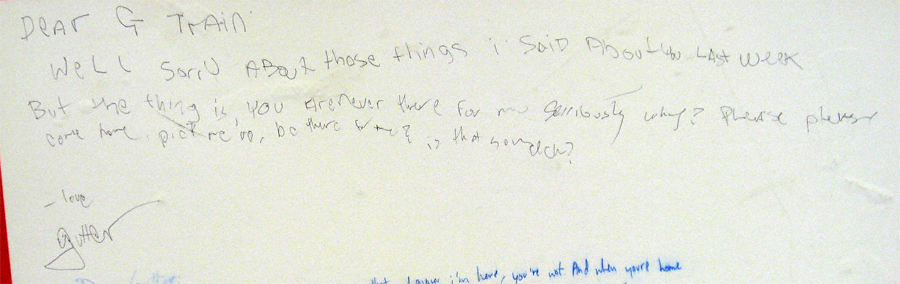 Dear G Train
Well Sorry About those things i Said About You Last week
But the thing is, you are never there for me Seriously why? Please please
come here, pick me up, be there for me? is that so much?
- love
gutter
i'm here, you're not. And when you're home